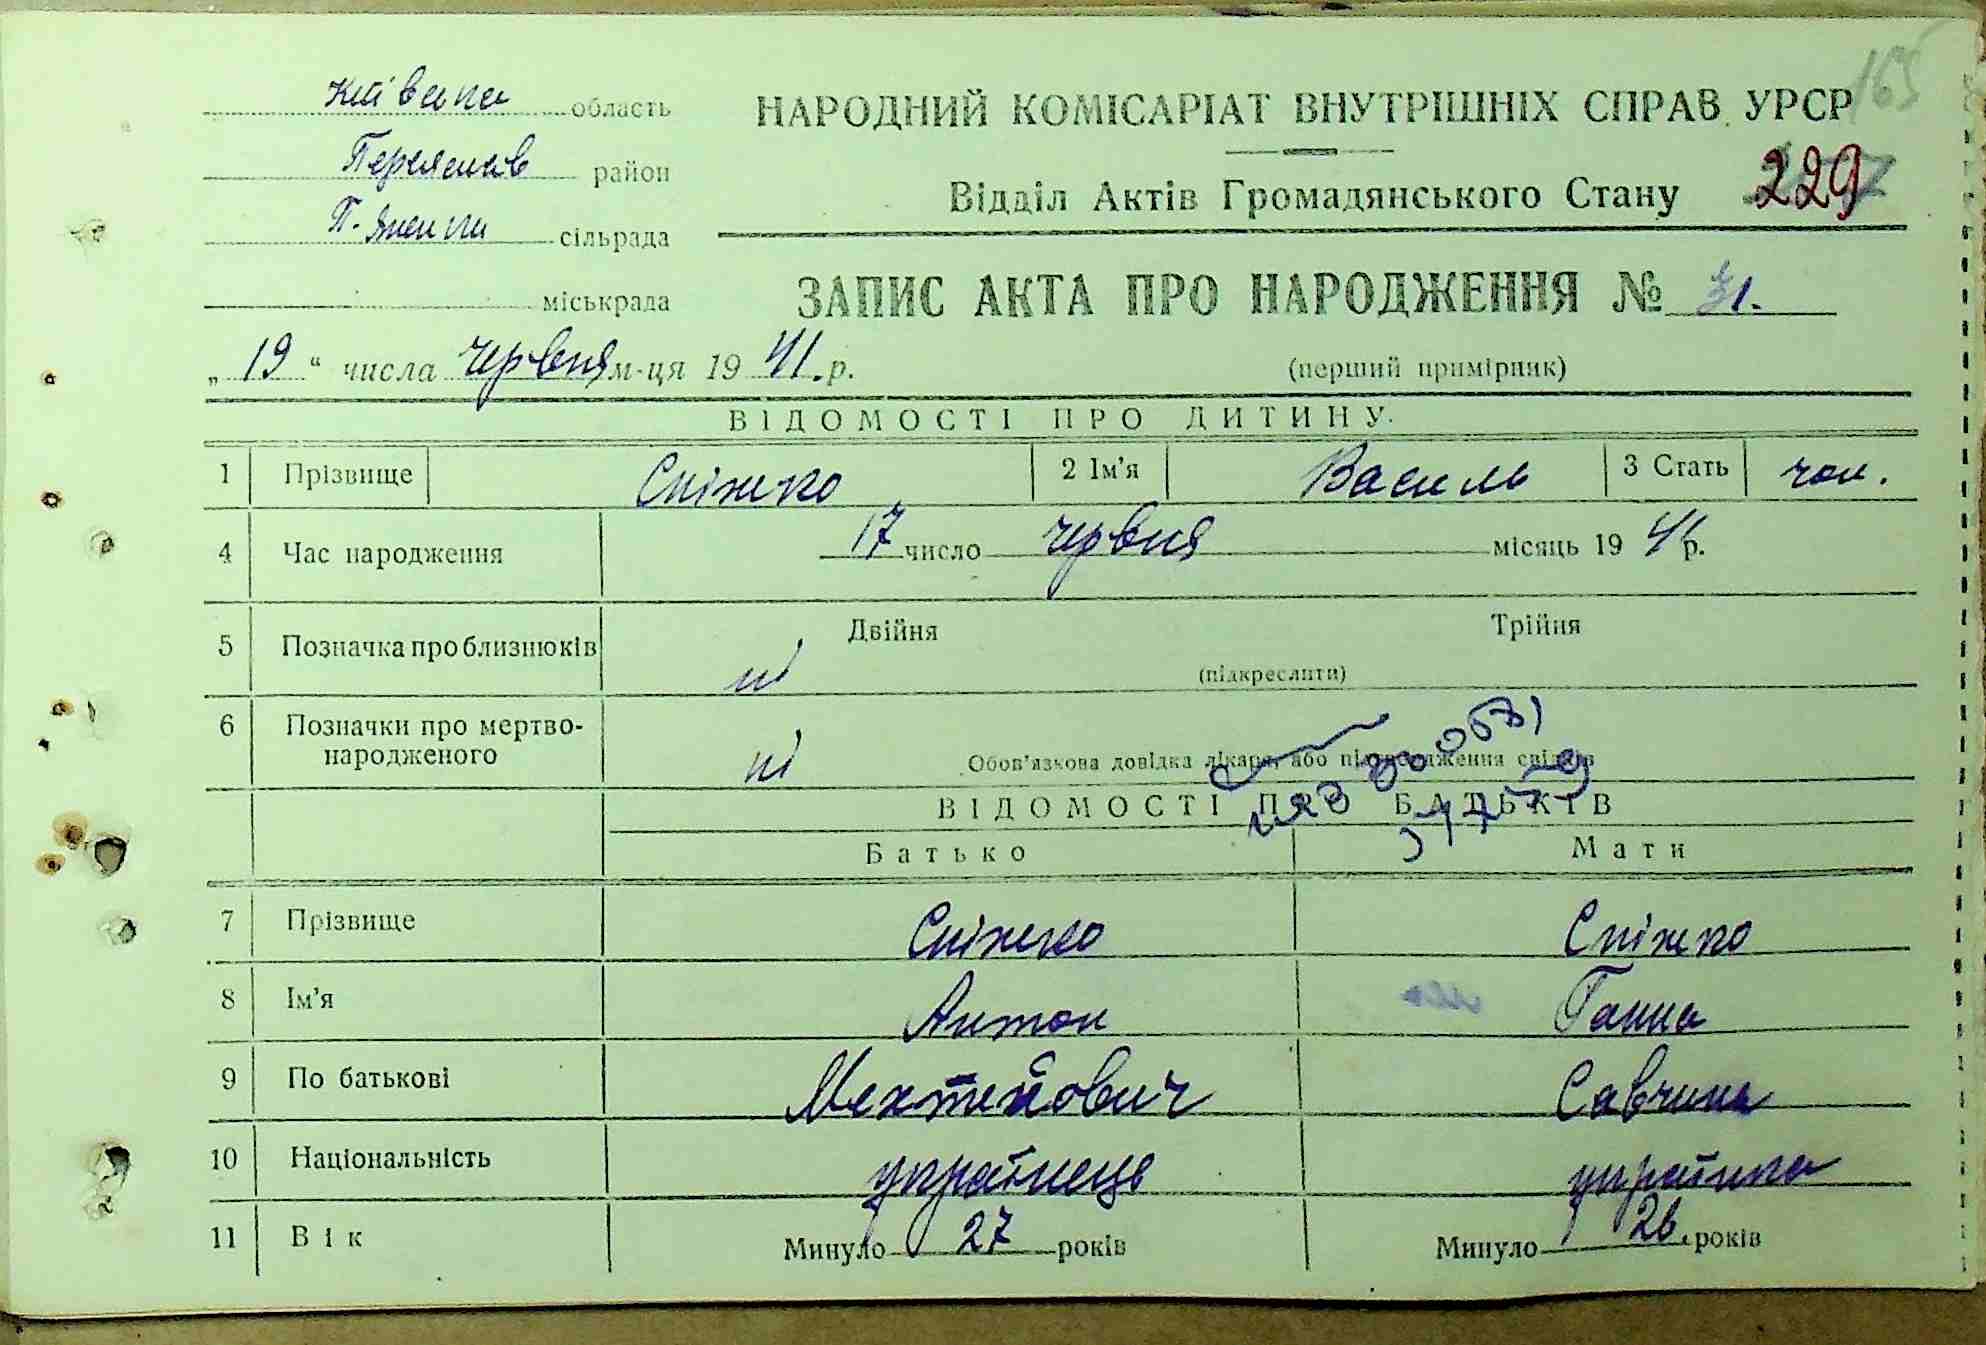 165
Київська область
НАРОДНИЙ КОМІСАРІАТ ВНУТРІШНІХ СПРАВ УРСР
Переяслав район
Відділ Актів Громадянського Стану 229
сільрада
міськрада
ЗАПИС АКТА ПРО НАРОДЖЕННЯ № 31.
„ 19 “ числа червня м-ця 19 41. р.
(перший примірник)
ВІДОМОСТІ ПРО ДИТИНУ.
1 Прізвище Сніжко 2 Ім'я Василь 3 Стать чол.
4 Час народження 17 число червня місяць 19 41 р.
5 Позначка про близнюків ні Двійня Трійня
(підкреслити)
6 Позначки про мертво-
народженого ні Обов'язкова довідка лікаря, або підтвердження свідків
ВІДОМОСТІ ПРО БАТЬКІВ
Батько Мати
7 Прізвище Сніжко Сніжко
8 Ім'я Антон Ганна
9 По батькові Савчина
10 Національність українець українка
11 Вік Минуло 27 років Минуло 26 років